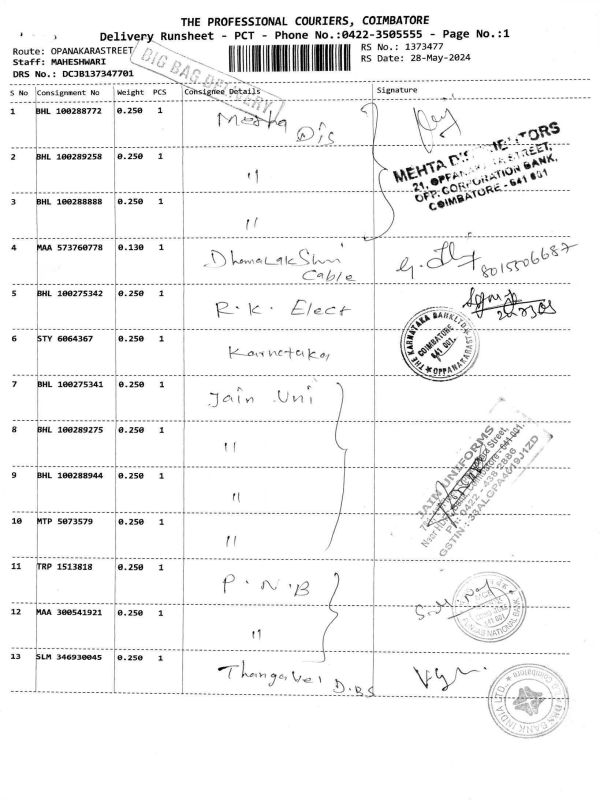 THE PROFESSIONAL COURIERS, COIMBATORE
Delivery Runsheet - PCT - Phone No.:0422-3505555 - Page No.:1
Route: OPANAKARASTREET
RS No.: 1373477
Staff: MAHESHWARI
RS Date: 28-May-2024
DRS No.: DCJB137347701
BIG BAG DELIVERY
S No Consignment No Weight PCS Consignee Details Signature
1 BHL 100288772 0.250 1 Mesha Dis
MEHTA DISTRIBUTORS
21, OPPANAKARA STREET,
OPP. CORPORATION BANK,
COIMBATORE - 641 001
2 BHL 100289258 0.250 1 "
3 BHL 100288888 0.250 1 "
4 MAA 573760778 0.130 1 DhamaLakShmi
Cable
8015506687
5 BHL 100275342 0.250 1 R.K. Elect
6 STY 6064367 0.250 1 Karnetaka
THE KARNATAKA BANK LTD.
COIMBATORE
641 001.
7 BHL 100275341 0.250 1 Jain Uni
8 BHL 100289275 0.250 1 "
JAIN UNIFORMS
Coimbatore - 641 001.
0422 - 438 2886
GSTIN : 33ALCPA4019J1ZD
9 BHL 100288944 0.250 1 "
10 MTP 5073579 0.250 1 "
11 TRP 1513818 0.250 1 P.N.B
12 MAA 300541921 0.250 1 "
PUNJAB NATIONAL BANK
13 SLM 346930045 0.250 1 Thangavel D.BS
DBS BANK INDIA LTD.
Coimbatore